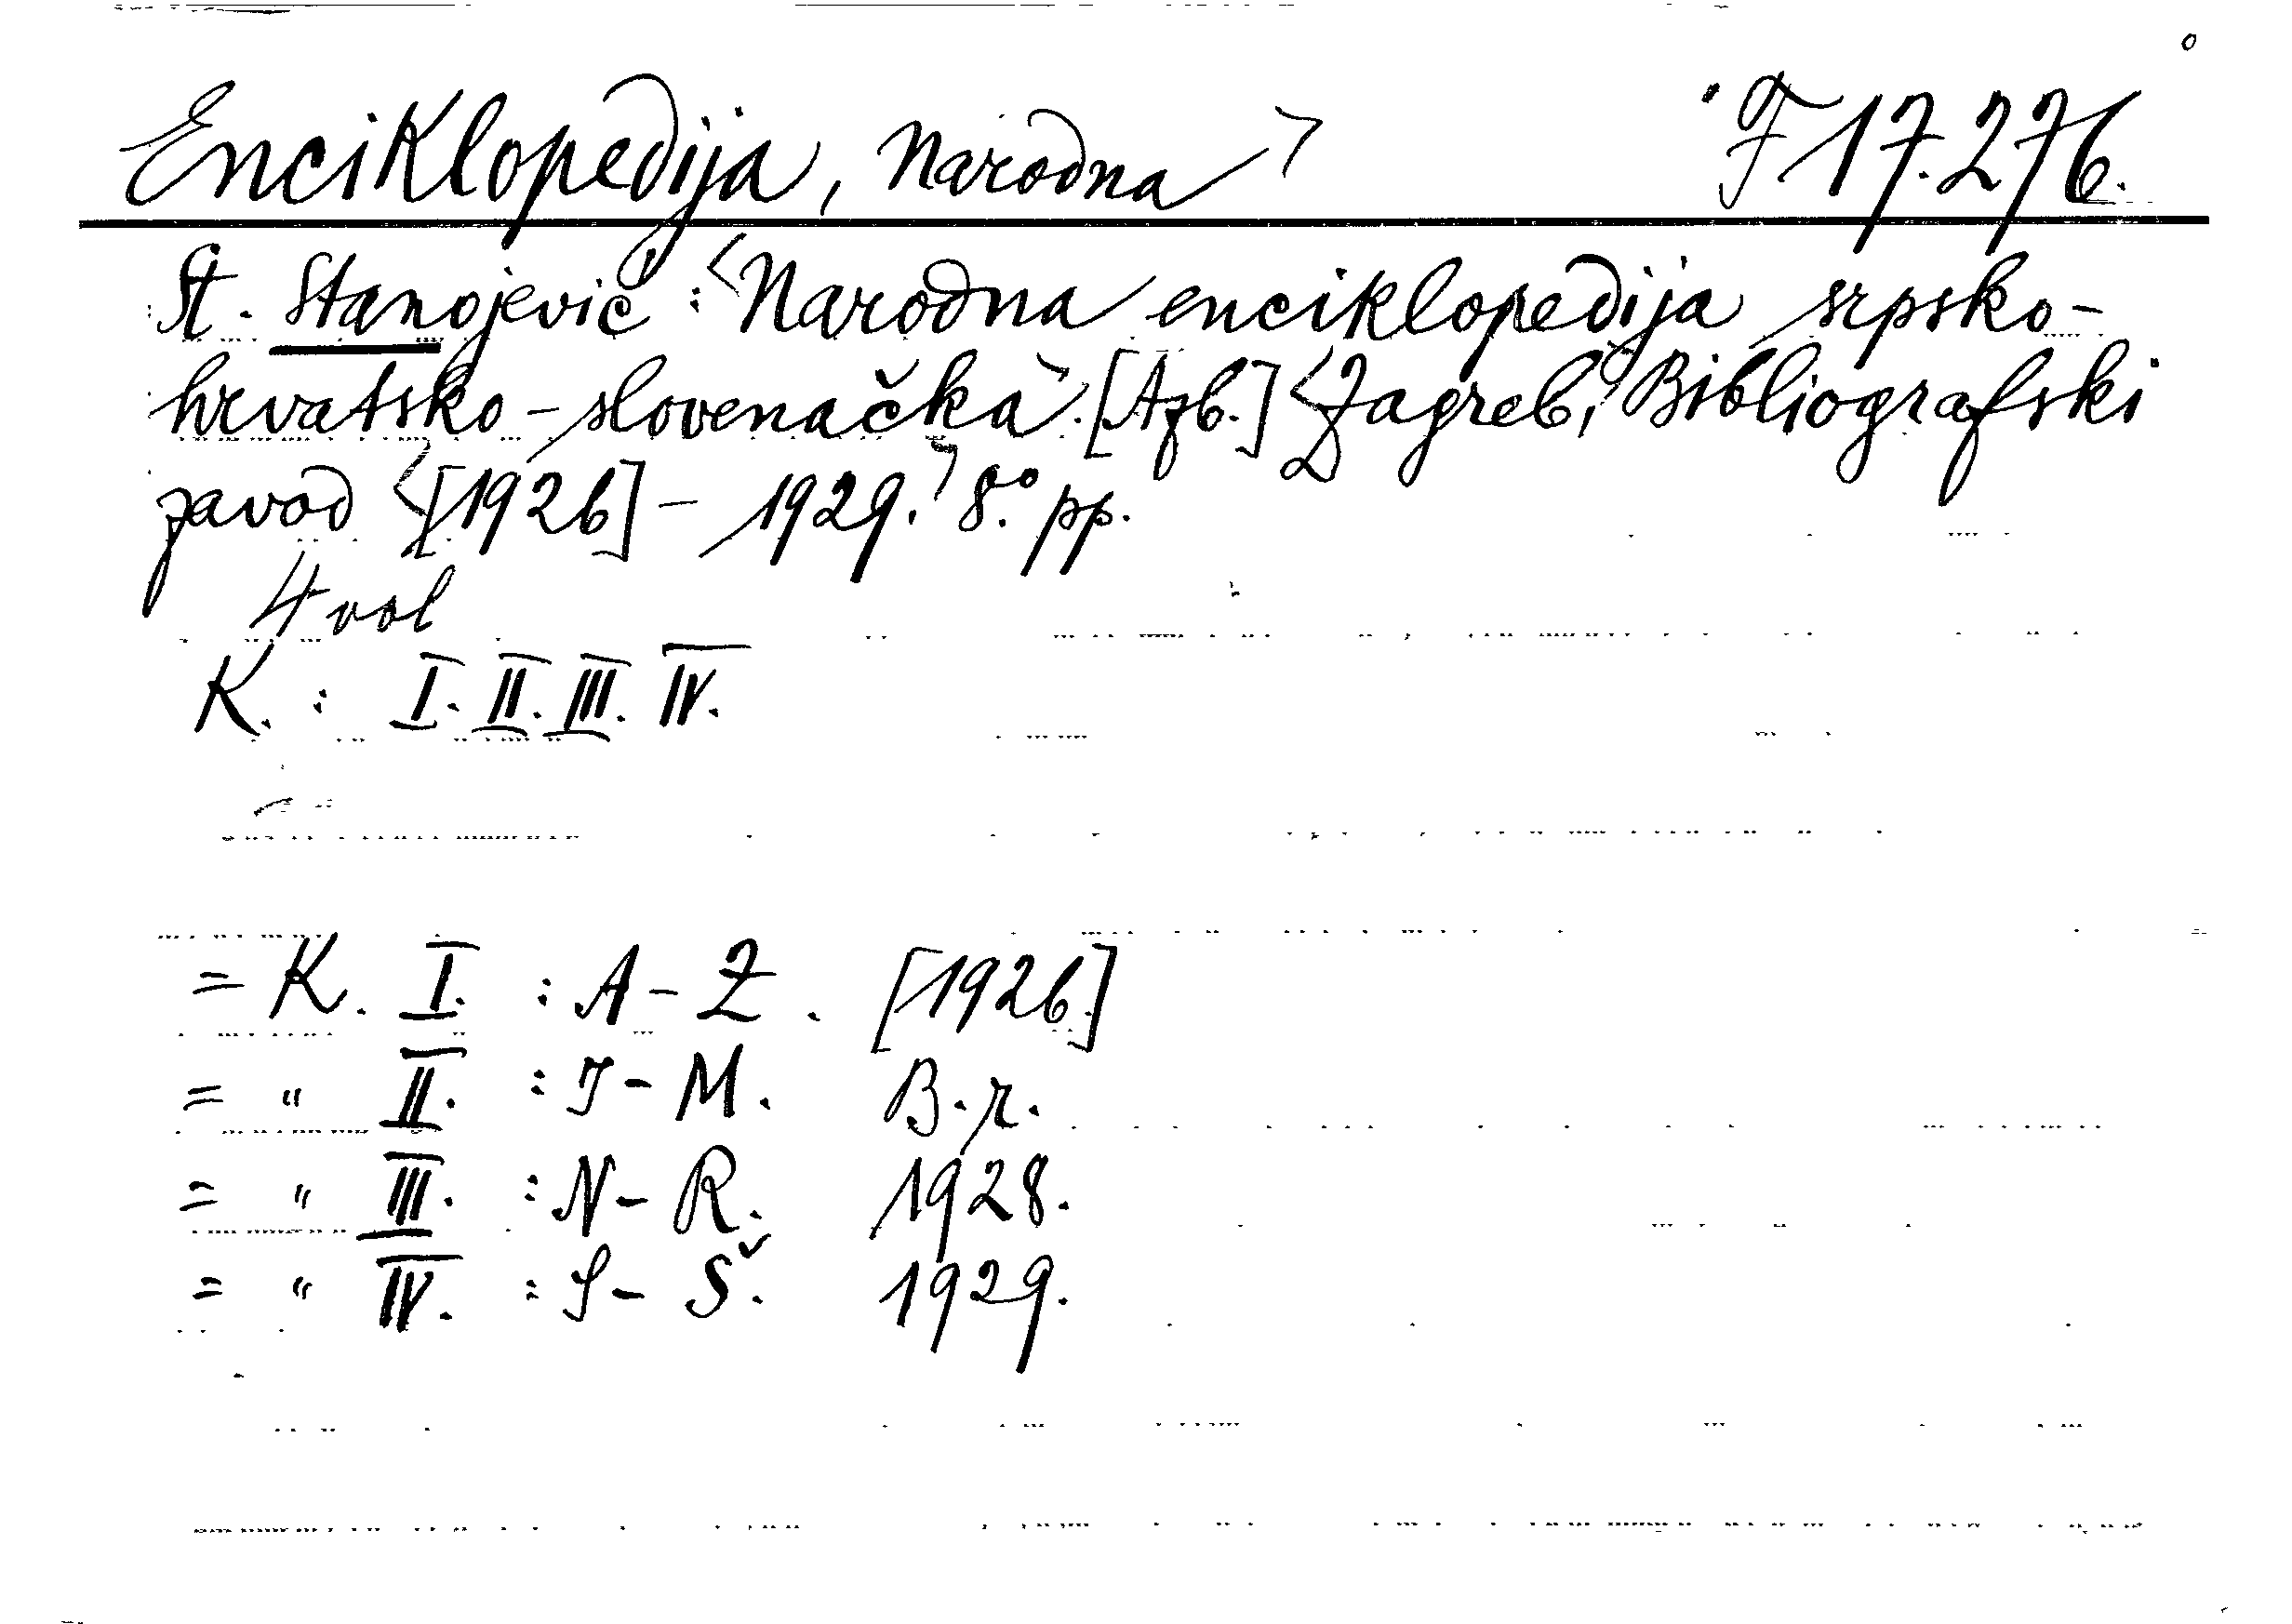 Enciklopedija, Narodna> F 17.276.
St. Stanojević: <Narodna enciklopedija srpsko-
hrvatsko-slovenačka>. [Azb.] <Zagreb,> Bibliografski
zavod <[1926]-1929.> 8.° pp.
4 vol
K. : I. II. III. IV.
= K. I. : A-Z. [1926]
= " II. : I-M. B.r.
= " III. : N-R. 1928.
= " IV. : S-Š. 1929.